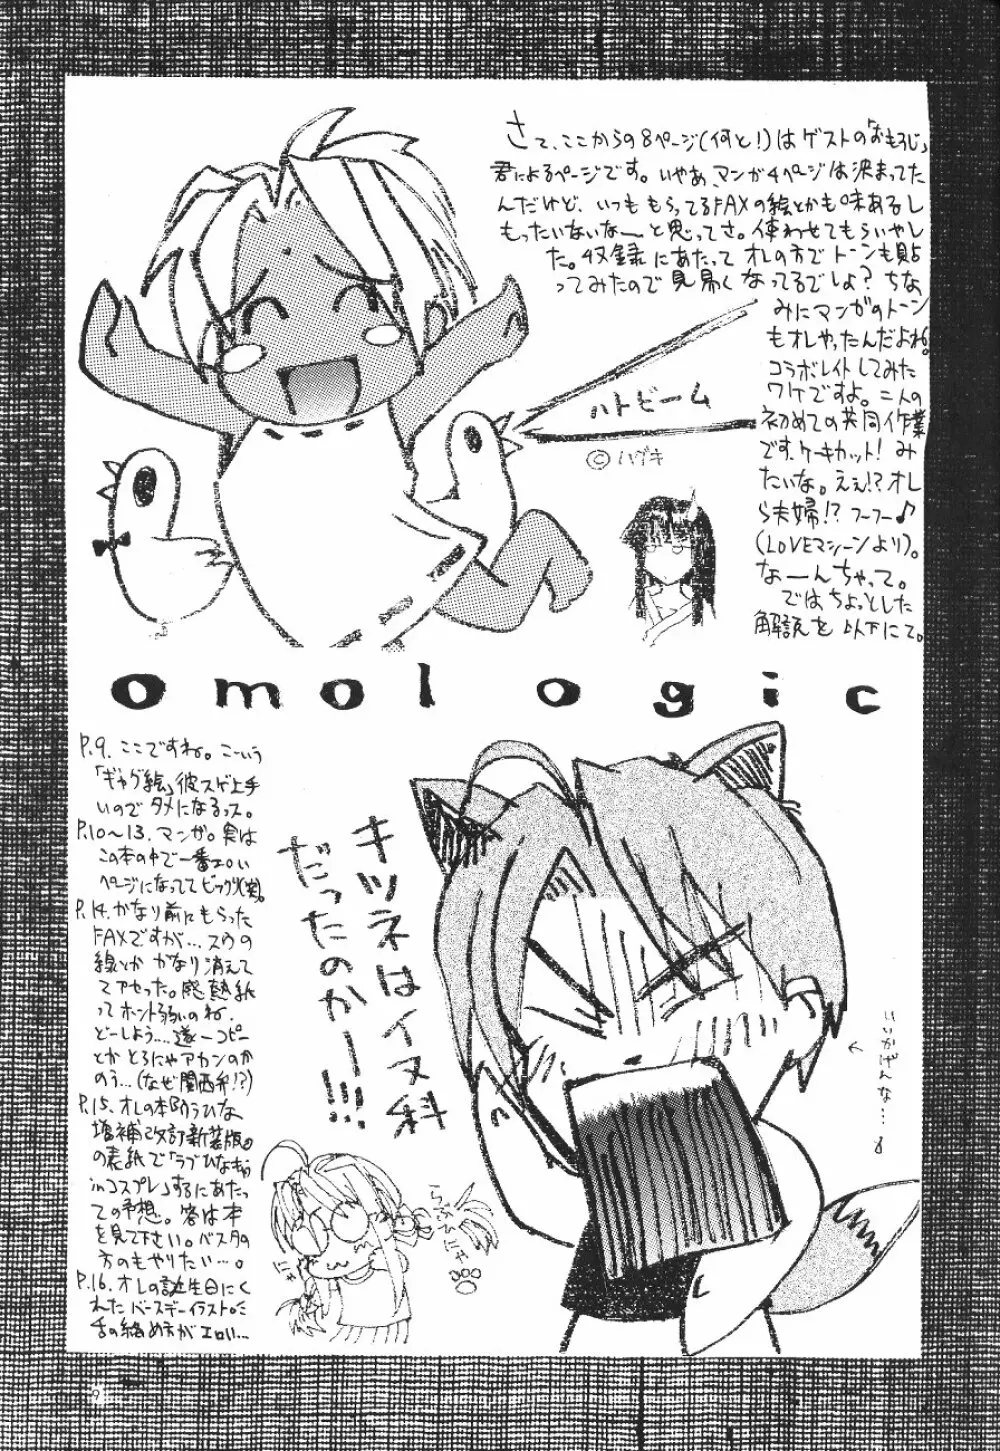 さて、ここからの8ページ(何と!)はゲストの「おもろじ」
君によるページです。いやあ、マンガ4ページは決まってた
んだけど、いつももらってるFAXの絵とかも味あるし
もったいないなーと思ってさ。使わせてもらいやし
た。収録にあたってオレの方でトーンも貼
ってみたので見易くなってるでしょ?ちな
みにマンガのトーン
もオレやったんだよね。
コラボレイトしてみた
ワケですよ。二人の
初めての共同作業
です。ケーキカット!み
たいな。ええ!?オレ
ら夫婦!?フーフー♪
(LOVEマシーンより)。
なーんちゃって。
ではちょっとした
解説を以下にて。
ハトビーム
©ハグキ
omologic
P.9. ここですね。こーいう
「ギャグ絵」彼スゲ上手
いのでタメになるっス。
P.10〜13. マンガ。実は
この本の中で一番エロい
ページになっててビックリ(笑)。
P.14. かなり前にもらった
FAXですが…スウの
線とかかなり消えて
てアセった。感熱紙
ってホント弱いのね.
どーしよう…逐一コピー
とかとろにゃアカンのか
のう…(なぜ関西弁!?)
P.15. オレの本『陥うひな
増補改訂新装版』
の表紙で「ラブひなキャラ
inコスプレ」するにあたっ
ての予想。答は本
を見て下さい。バスタの
方のもやりたい…。
P.16. オレの誕生日にく
れたバースデーイラスト。
舌の絡め方がエロい…
キツネはイヌ科
だったのかー!!!
いいかげんな…
らぶひにゃ
にゃ
にゃ
9